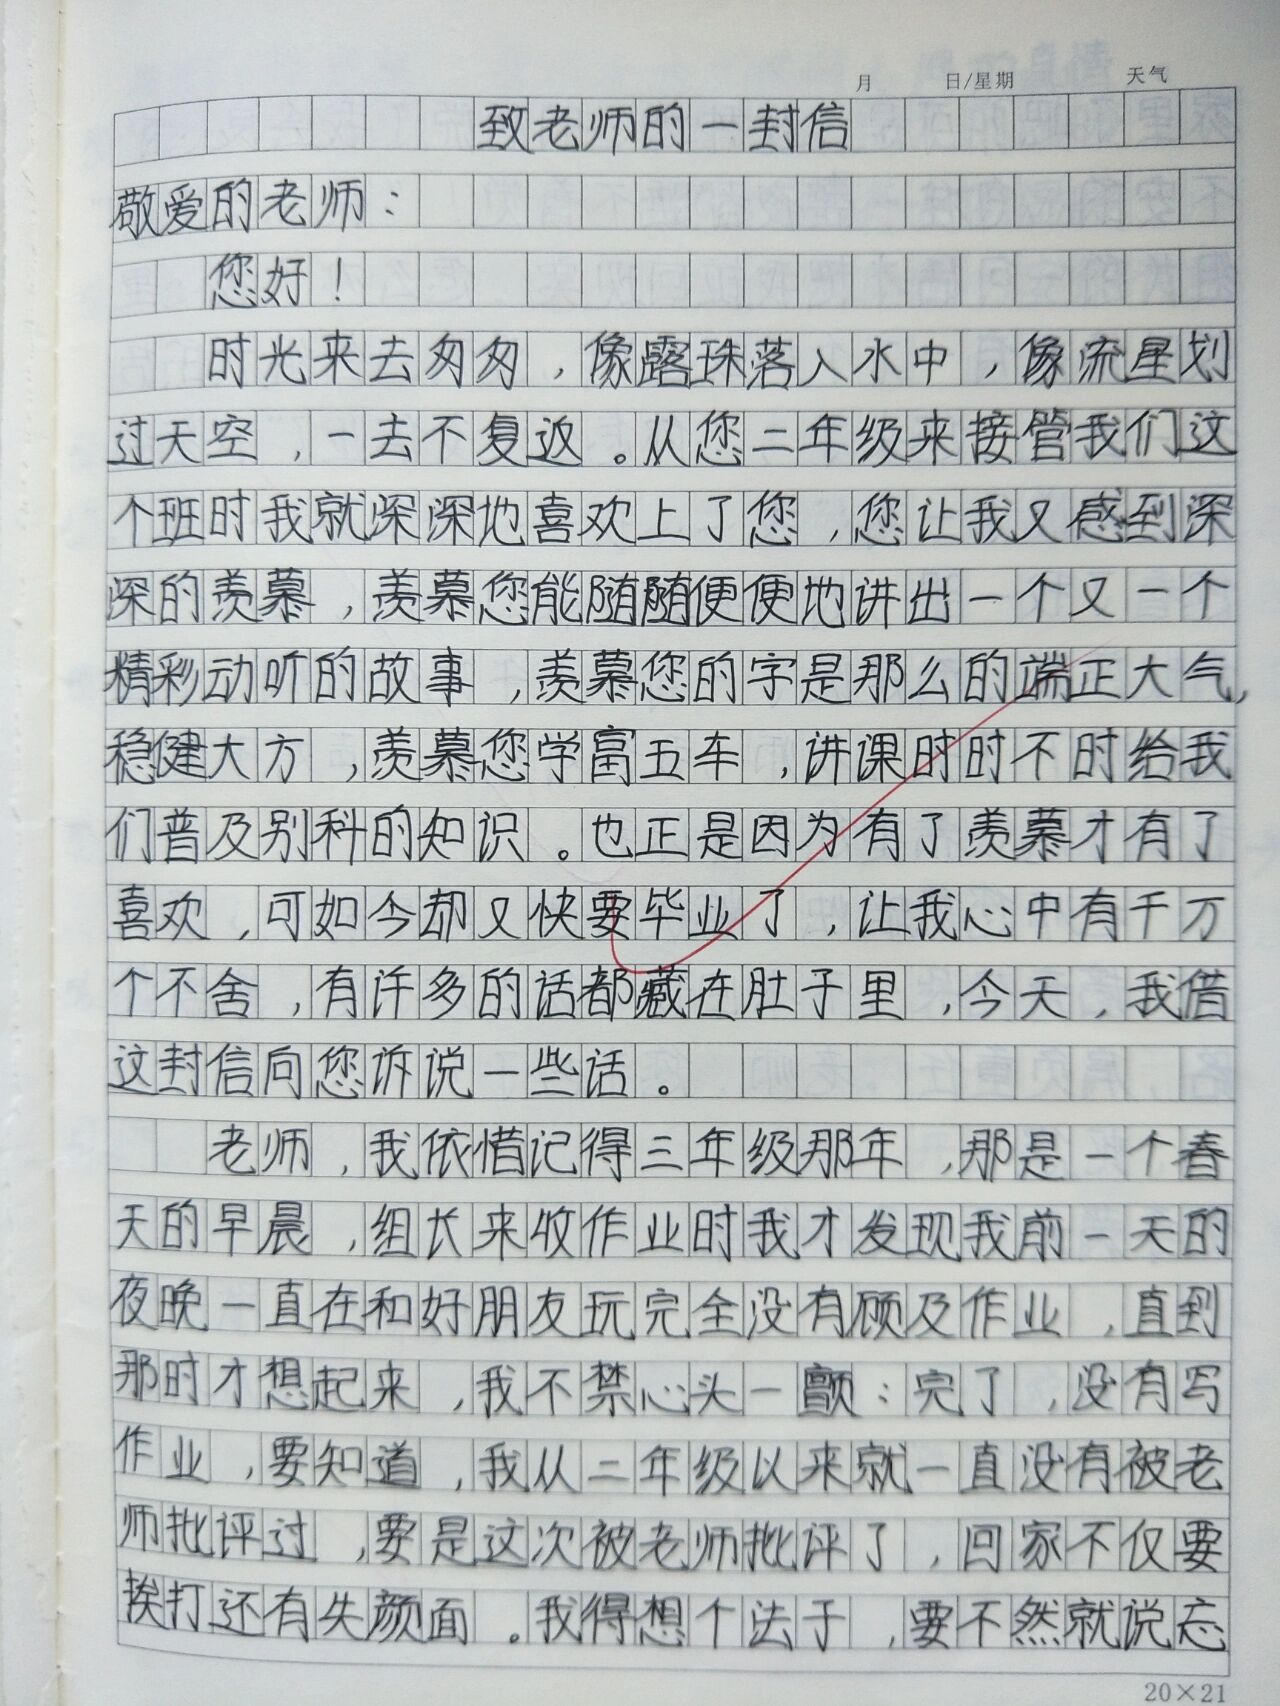 月 日/星期 天气
致老师的一封信
敬爱的老师：
您好！
时光来去匆匆，像露珠落入水中，像流星划
过天空，一去不复返。从您二年级来接管我们这
个班时我就深深地喜欢上了您，您让我又感到深
深的羡慕，羡慕您能随随便便地讲出一个又一个
精彩动听的故事，羡慕您的字是那么的端正大气，
稳健大方，羡慕您学富五车，讲课时时不时给我
们普及别科的知识。也正是因为有了羡慕才有了
喜欢，可如今却又快要毕业了，让我心中有千万
个不舍，有许多的话都藏在肚子里，今天，我借
这封信向您诉说一些话。
老师，我依惜记得三年级那年，那是一个春
天的早晨，组长来收作业时我才发现我前一天的
夜晚一直在和好朋友玩完全没有顾及作业，直到
那时才想起来，我不禁心头一颤：完了，没有写
作业，要知道，我从二年级以来就一直没有被老
师批评过，要是这次被老师批评了，回家不仅要
挨打还有失颜面。我得想个法子，要不然就说忘
20×21